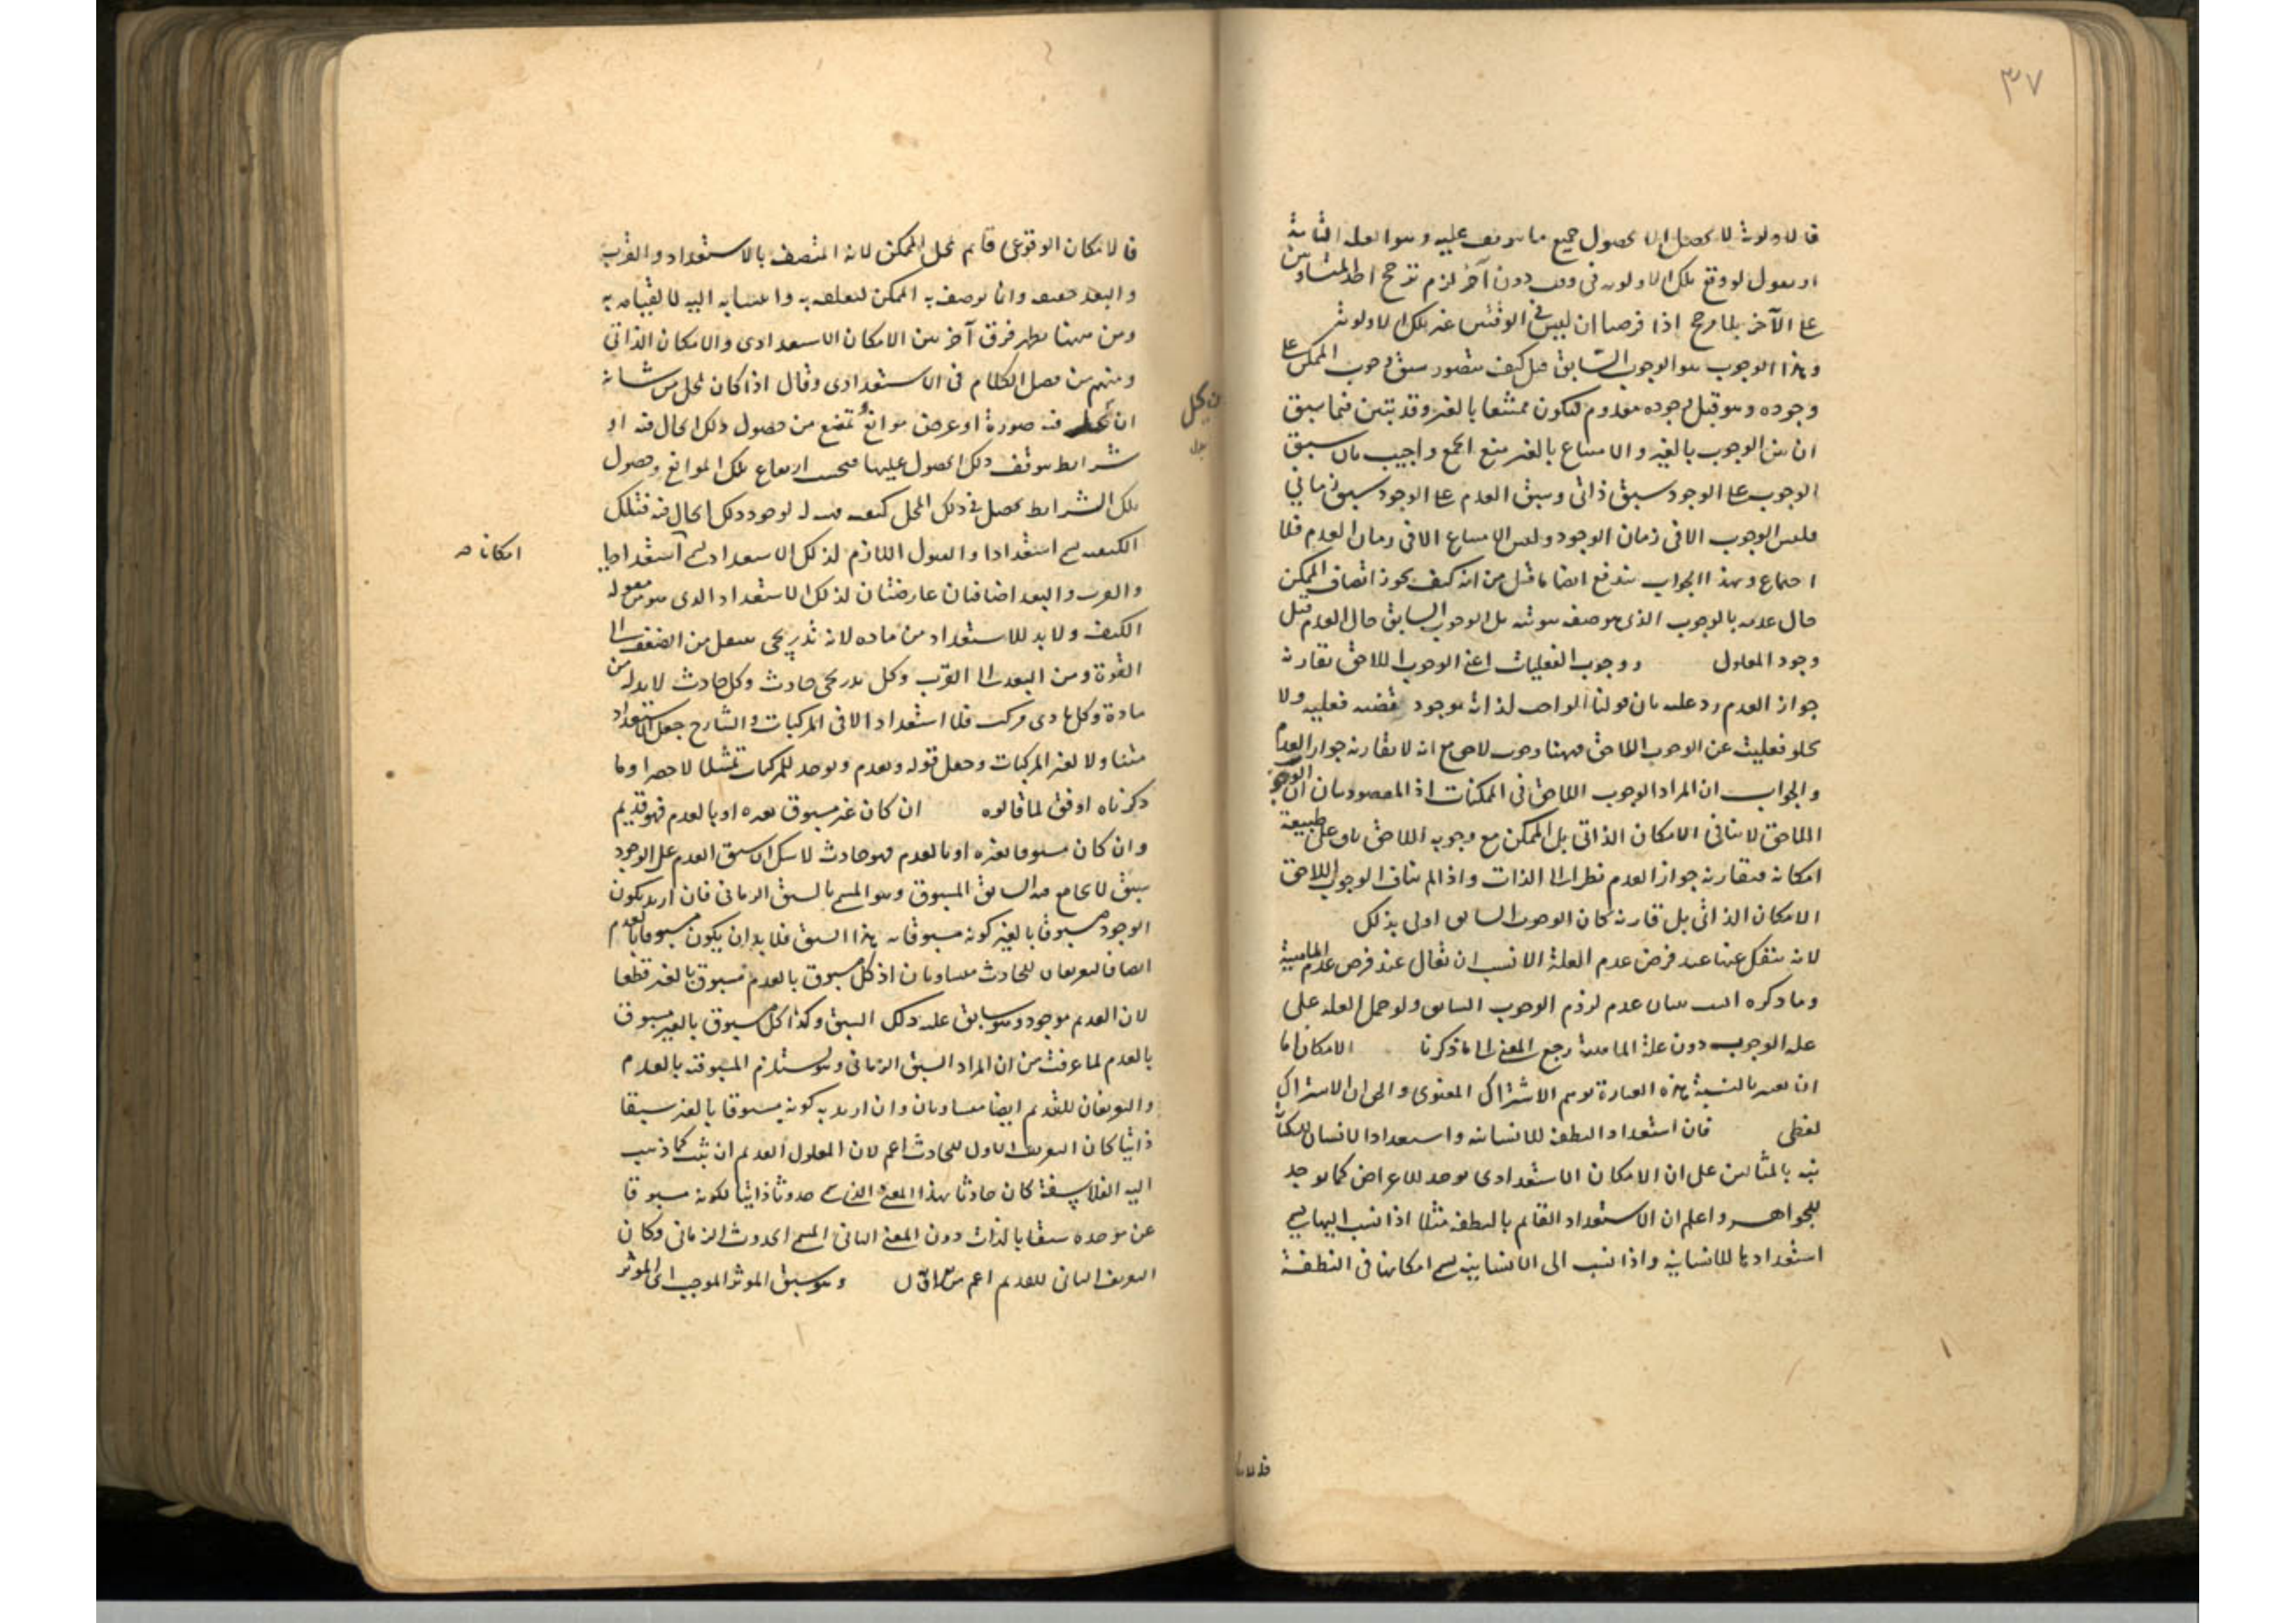 ٣٧
فالاولوية لا تحصل الا بحصول جميع ما يتوقف عليه وهو العلة التامة
او نقول لو وقع بتلك الاولوية فى وقت دون آخر لزم ترجح احد المتساويين
على الآخر بلا مرجح اذا فرضنا ان ليس فى الوقتين غير تلك الاولوية
وهذا الوجوب هو الوجوب السابق قيل كيف يتصور سبق وجوب الممكن على
وجوده وهو قبل وجوده معدوم فيكون ممتنعا بالغير وقد تبين فيما سبق
ان بين الوجوب بالغير والامتناع بالغير منع الجمع واجيب بان سبق
الوجوب على الوجود سبق ذاتى وسبق العدم على الوجود سبق زمانى
فليس الوجوب الا فى زمان الوجود وليس الامتناع الا فى زمان العدم فلا
اجتماع وبهذا الجواب يندفع ايضا ما قيل من انه كيف يجوز اتصاف الممكن
حال عدمه بالوجوب الذى هو صفة ثبوتية بل الوجوب السابق حال العدم قبل
وجود المعلول ووجوب الفعليات اعنى الوجوب اللاحق يقارنه
جواز العدم رد عليه بان قولنا الواجب لذاته موجود قضية فعلية ولا
يخلو فعلية عن الوجوب اللاحق فههنا وجوب لاحق مع انه لا يقارنه جواز العدم
والجواب ان المراد الوجوب اللاحق فى الممكنات اذ المقصود بيان ان الوجوب
اللاحق لا ينافى الامكان الذاتى بل الممكن مع وجوبه اللاحق باق على طبيعة
امكانه فيقارنه جواز العدم نظرا الى الذات واذا لم يناف الوجوب اللاحق
الامكان الذاتى بل قارنه كان الوجوب السابق اولى بذلك
لانه ينفك عنها عند فرض عدم العلة الانسب ان يقال عند فرض عدم الماهية
وما ذكره انسب ببيان عدم لزوم الوجوب السابق ولو حمل العلة على
علة الوجوب دون علة الماهية رجع المعنى الى ما ذكرنا الامكان اما
ان يعتبر بالنسبة هذه العبارة توهم الاشتراك المعنوى والحق ان الاشتراك
لفظى فان استعداد النطفة للانسانية واستعداد الانسان للكتابة
نبه بالمثالين على ان الامكان الاستعدادى يوجد للاعراض كما يوجد
للجواهر واعلم ان الاستعداد القائم بالنطفة مثلا اذا نسب اليها يسمى
استعدادها للانسانية واذا نسب الى الانسانية يسمى امكانها فى النطفة
فالامكان الوقوعى قائم بمحل الممكن لانه المتصف بالاستعداد والقرب
والبعد حقيقة وانما يوصف به الممكن لتعلقه به وانتسابه اليه لا لقيامه به
ومن ههنا يظهر فرق آخر بين الامكان الاستعدادى والامكان الذاتى
ومنهم من فصل الكلام فى الاستعدادى وقال اذا كان لمحل من شانه
ان يحل فيه صورة او عرض موانع تمنع من حصول ذلك الحال فيه او
شرايط يتوقف ذلك الحصول عليها فبحسب ارتفاع تلك الموانع وحصول
تلك الشرايط يحصل فى ذلك المحل كيفية لوجود ذلك الحال فيه فتلك
الكيفية يسمى استعدادا والقبول اللازم لذلك الاستعداد يسمى استعداديا
امكانا
والقرب والبعد اضافتان عارضتان لذلك الاستعداد الذى هو من مقولة
الكيف ولا بد للاستعداد من مادة لانه تدريجى ينتقل من الضعف الى
القوة ومن البعد الى القرب وكل تدريجى حادث وكل حادث لا بد له من
مادة وكل مادى مركب فلا استعداد الا فى المركبات والشارح جعل الاستعداد
متناولا لغير المركبات وجعل قوله ويعدم ويوجد للمركبات تمثيلا لا حصرا وما
ذكرناه اوفق لما قالوه ان كان غير مسبوق بغيره او بالعدم فهو قديم
وان كان مسبوقا بغيره او بالعدم فهو حادث لا شك ان سبق العدم على الوجود
سبق لا يجامع فيه السابق المسبوق وهو المسمى بالسبق الزمانى فان اريد بكون
الوجود مسبوقا بالغير كونه مسبوقا به هذا السبق فلا بد ان يكون مسبوقا بالعدم
ايضا فالتعريفان للحادث متساويان اذ كل مسبوق بالعدم مسبوق بالغير قطعا
لان القديم موجود وهو سابق عليه ذلك السبق وكذا كل مسبوق بالغير مسبوق
بالعدم لما عرفت من ان المراد السبق الزمانى وهو يستلزم المسبوقية بالعدم
والتعريفان للقديم ايضا متساويان وان اريد به كونه مسبوقا بالغير سبقا
ذاتيا كان التعريف الاول للحادث اعم لان المعلول القديم ان ثبت كما ذهب
اليه الفلاسفة كان حادثا بهذا المعنى الذى يسمى حدوثا ذاتيا لكونه مسبوقا
عن موجده سبقا بالذات دون المعنى الثانى المسمى الحدوث الزمانى وكان
التعريف الثانى للقديم اعم من الاول وهو سبق الموثر الموجب اى الموثر